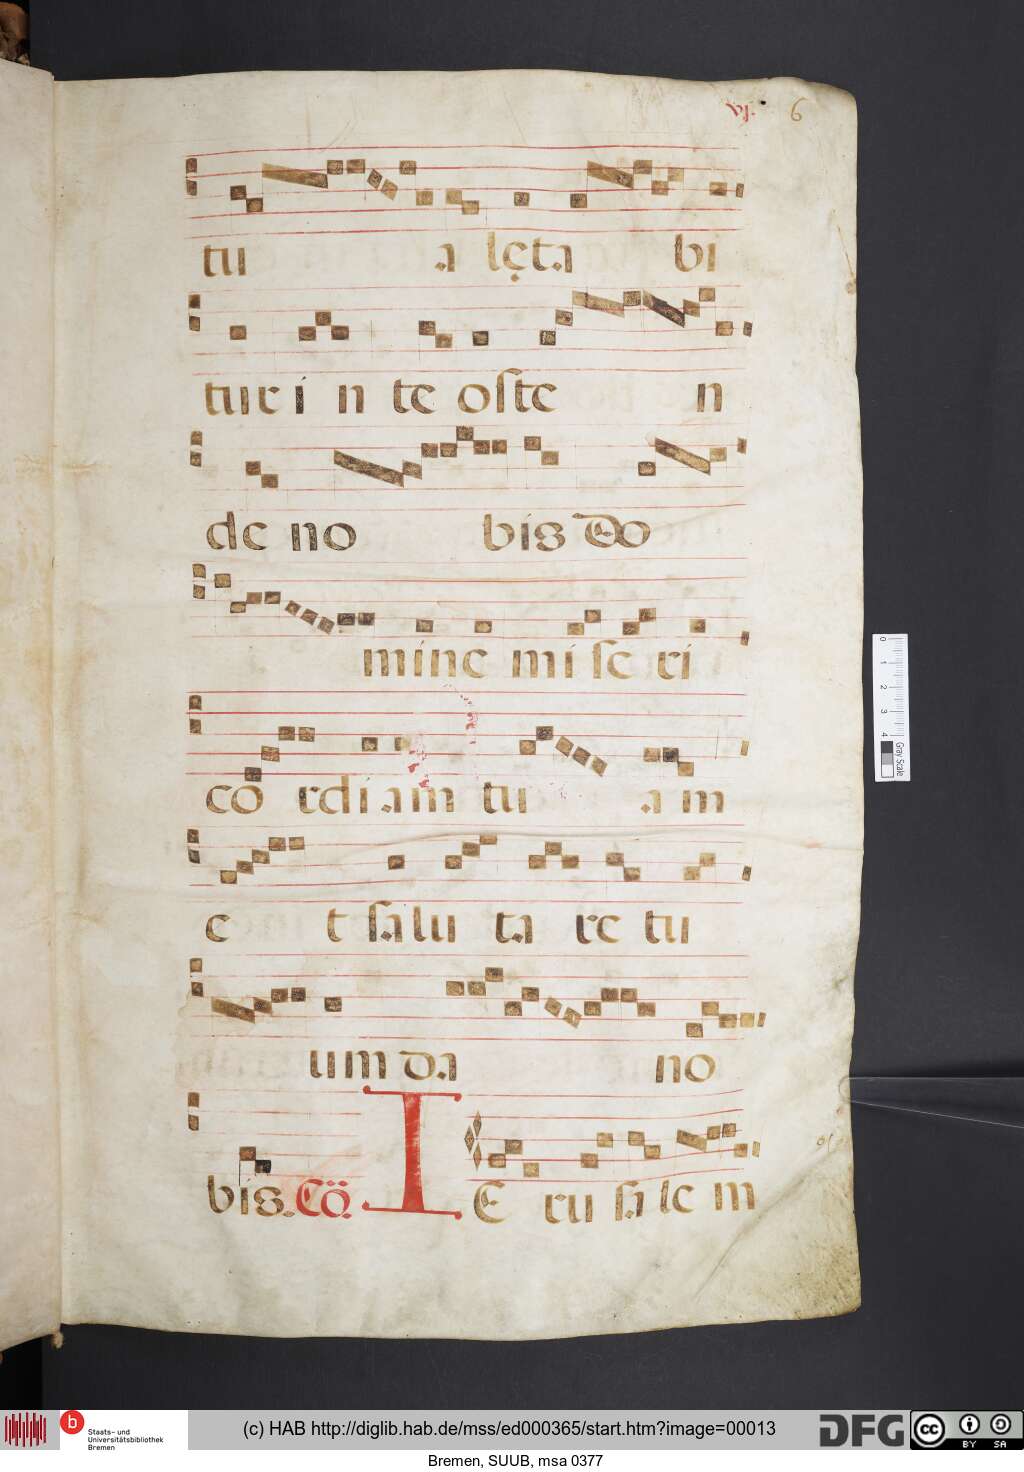 vj. 6
tu a lęta bi
tur í n te oſte n
de no bis Do
mine mi ſe ri
co rdiam tu a m
e t ſalu ta re tu
um da no
bis. Cõ. I E ru ſa le m
0 1 2 3 4 Gray Scale
b Staats- und Universitätsbibliothek Bremen
(c) HAB http://diglib.hab.de/mss/ed000365/start.htm?image=00013
DFG cc BY SA
Bremen, SUUB, msa 0377